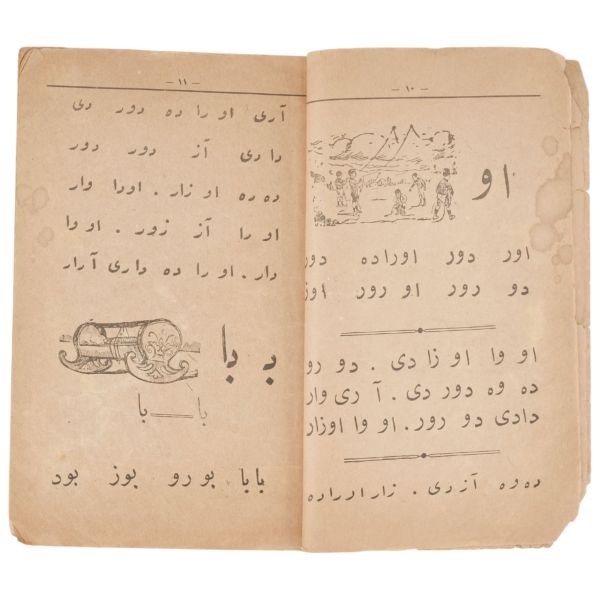 – ١٠ –
او
اور دور اوراده دور
دو رور او رور اوز
او وا او زا دی . دو رو
ده وه دور دی . آ ری وار
دادی دو رور . او وا اوزار
ده ره آز دی . زار اوراده
– ١١ –
آری او را ده دور دی
دا دی آز دور دور
ده ره او زار . اودا وار
او را آز زور . او وا
دار . او را ده داری آرار
بـ با
با — با
بابا بو رو بوز بود